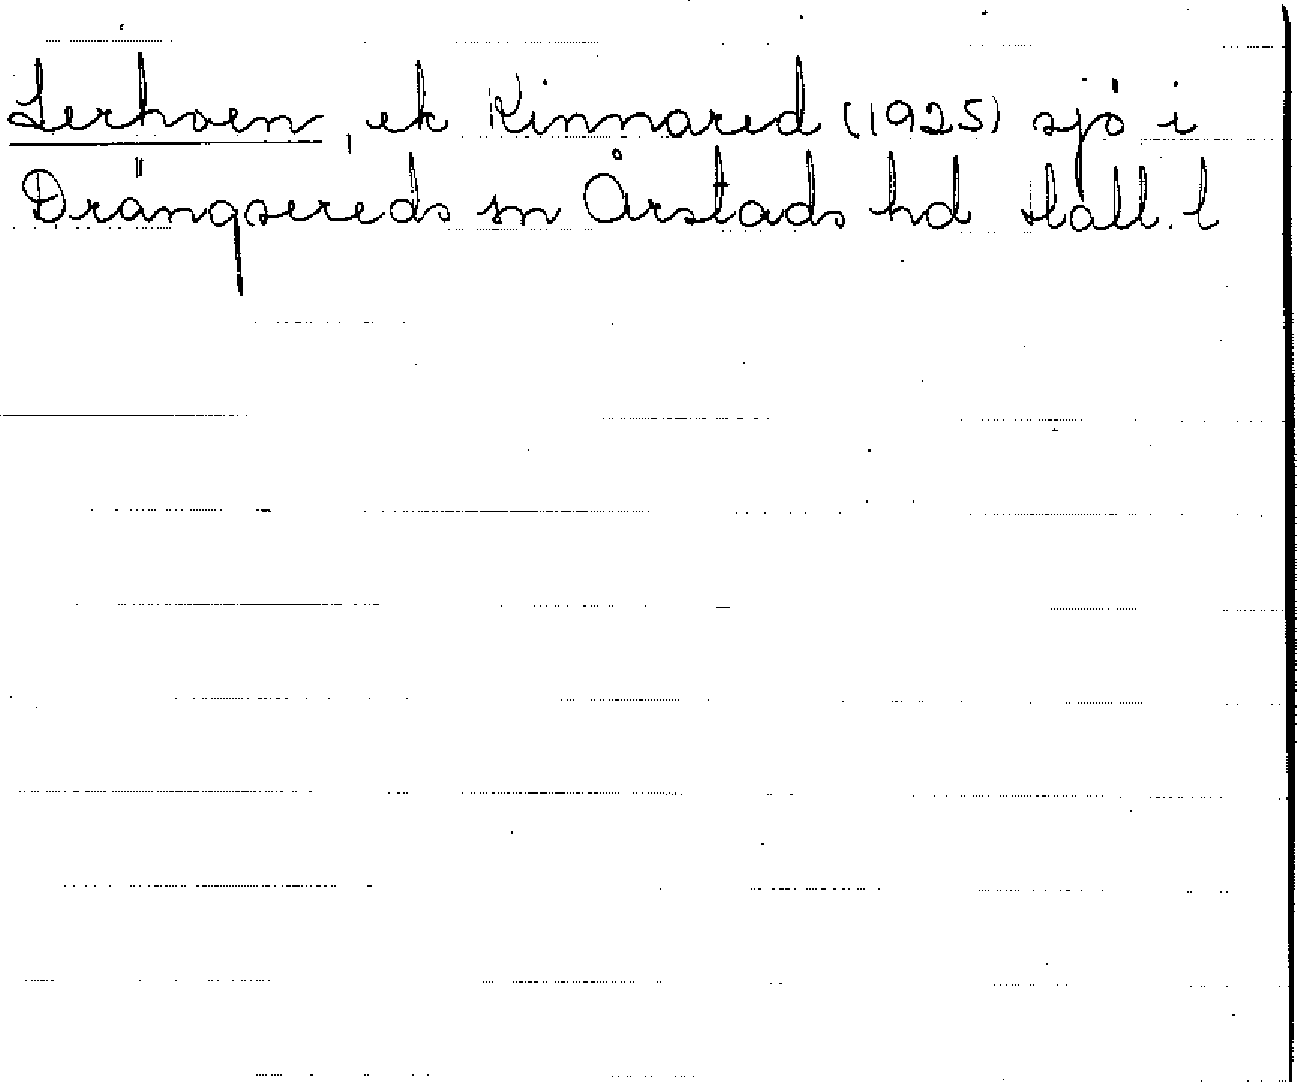 Lerhoen, ek Kinnared (1925) sjö i
Drängsereds sn Årstads hd Hall. l